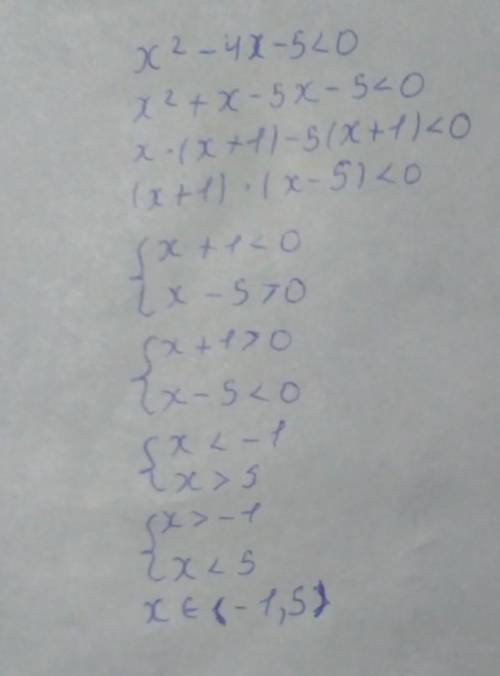 x² - 4x - 5 < 0
x² + x - 5x - 5 < 0
x · (x + 1) - 5(x + 1) < 0
(x + 1) · (x - 5) < 0
{ x + 1 < 0
x - 5 > 0
{ x + 1 > 0
x - 5 < 0
{ x < -1
x > 5
{ x > -1
x < 5
x ∈ (-1, 5)